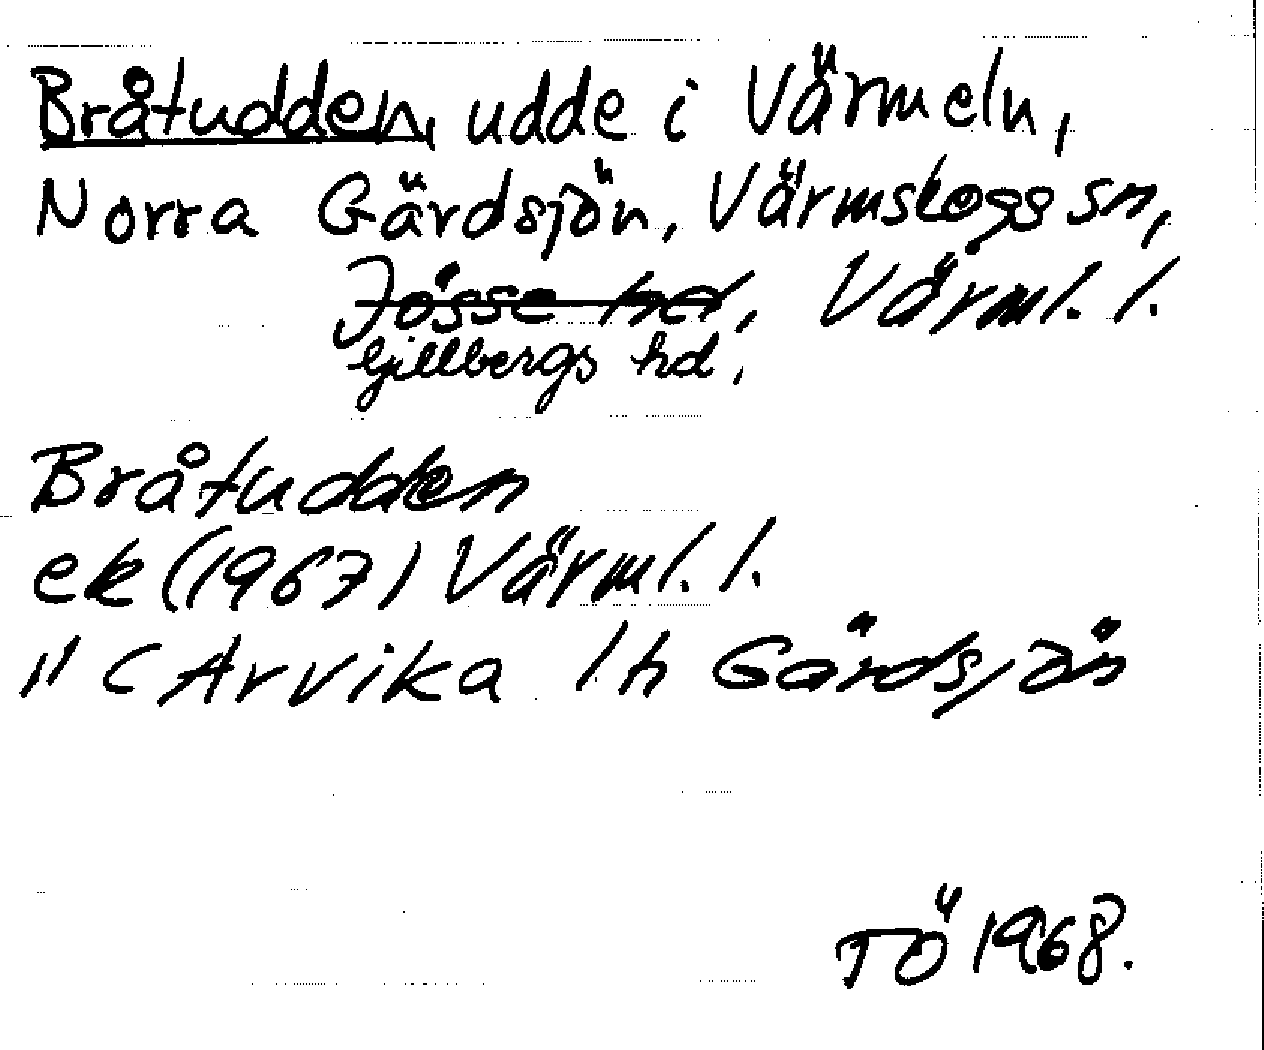 Bråtudden, udde i Värmeln,
Norra Gärdsjön, Värmskogs sn,
Jösse hd, Värml. l.
Gillbergs hd,
Bråtudden
ek (1967) Värml. l.
11 C Arvika 1h Gärdsjön
TÖ 1968.